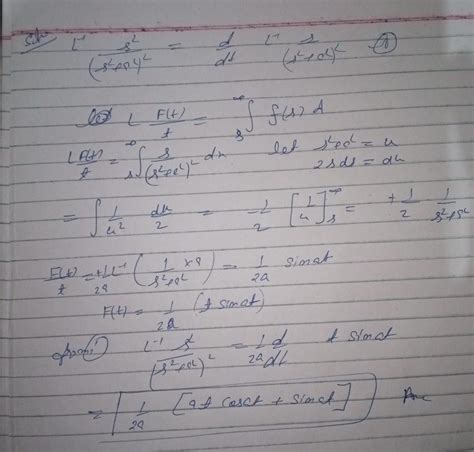 Soln L⁻¹ s²/(s²+a²)² = d/dt L⁻¹ s/(s²+a²)² ①
let L F(t)/t = ∫_s^∞ f(s) ds
L F(t)/t = ∫_s^∞ s/(s²+a²)² ds let s²+a² = u
2sds = du
= ∫ 1/u² du/2 = -1/2 [1/u]_s^∞ = +1/2 1/(s²+a²)
F(t)/t = +1/2a L⁻¹ (1/(s²+a²) × a) = 1/2a sinat
F(t) = 1/2a (t sinat)
from ① L⁻¹ s²/(s²+a²)² = 1/2a d/dt t sinat
= 1/2a [at cosat + sinat] Ans